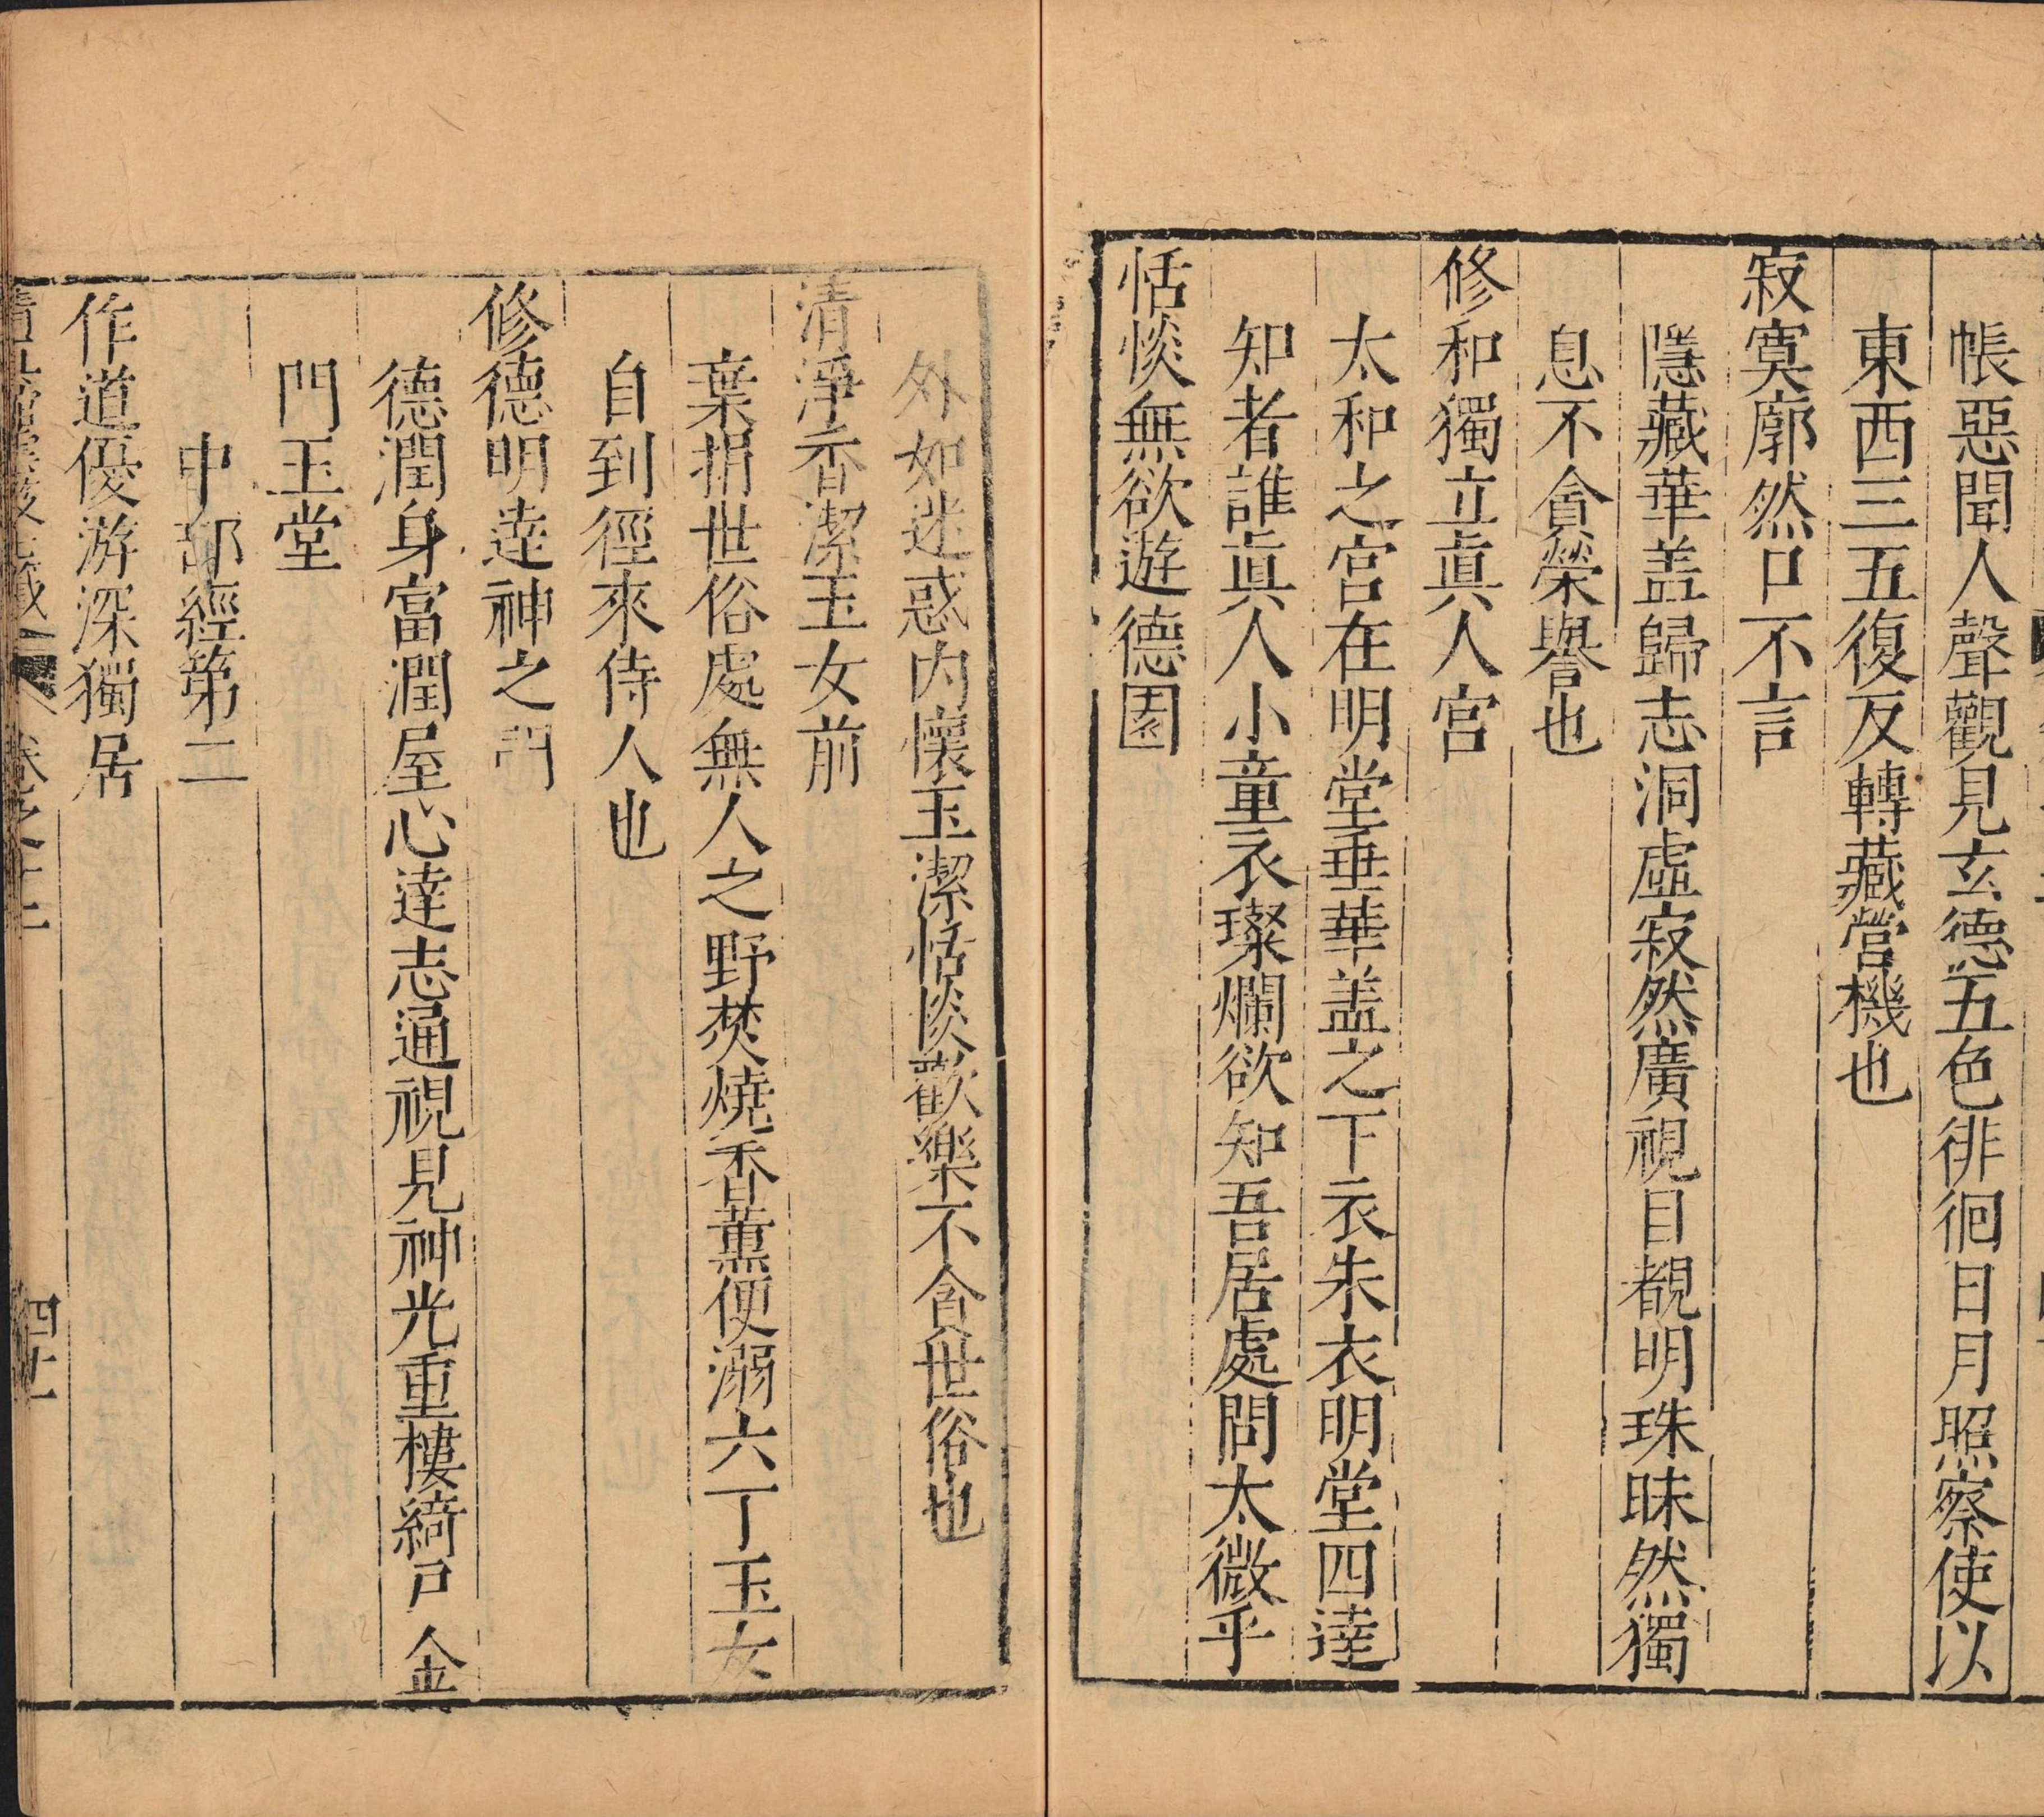 帳惡聞人聲觀見玄德五色徘徊日月照察使以
東西三五復反轉藏營機也
寂寞廓然口不言
隱藏華盖歸志洞虛寂然廣視目覩明珠昧然獨
息不貪榮譽也
修和獨立眞人宮
太和之宮在明堂垂華盖之下衣朱衣明堂四達
知者誰眞人小童衣璨爛欲知吾居處問太微乎
恬惔無欲遊德園
外如迷惑内懷玉潔恬惔歡樂不貪世俗也
清淨香潔玉女前
棄捐世俗處無人之野焚燒香薰便溺六丁玉女
自到徑來侍人也
修德明達神之門
德潤身富潤屋心達志通視見神光重樓綺戸金
門玉堂
中部經第二
作道優游深獨居
卷之十二